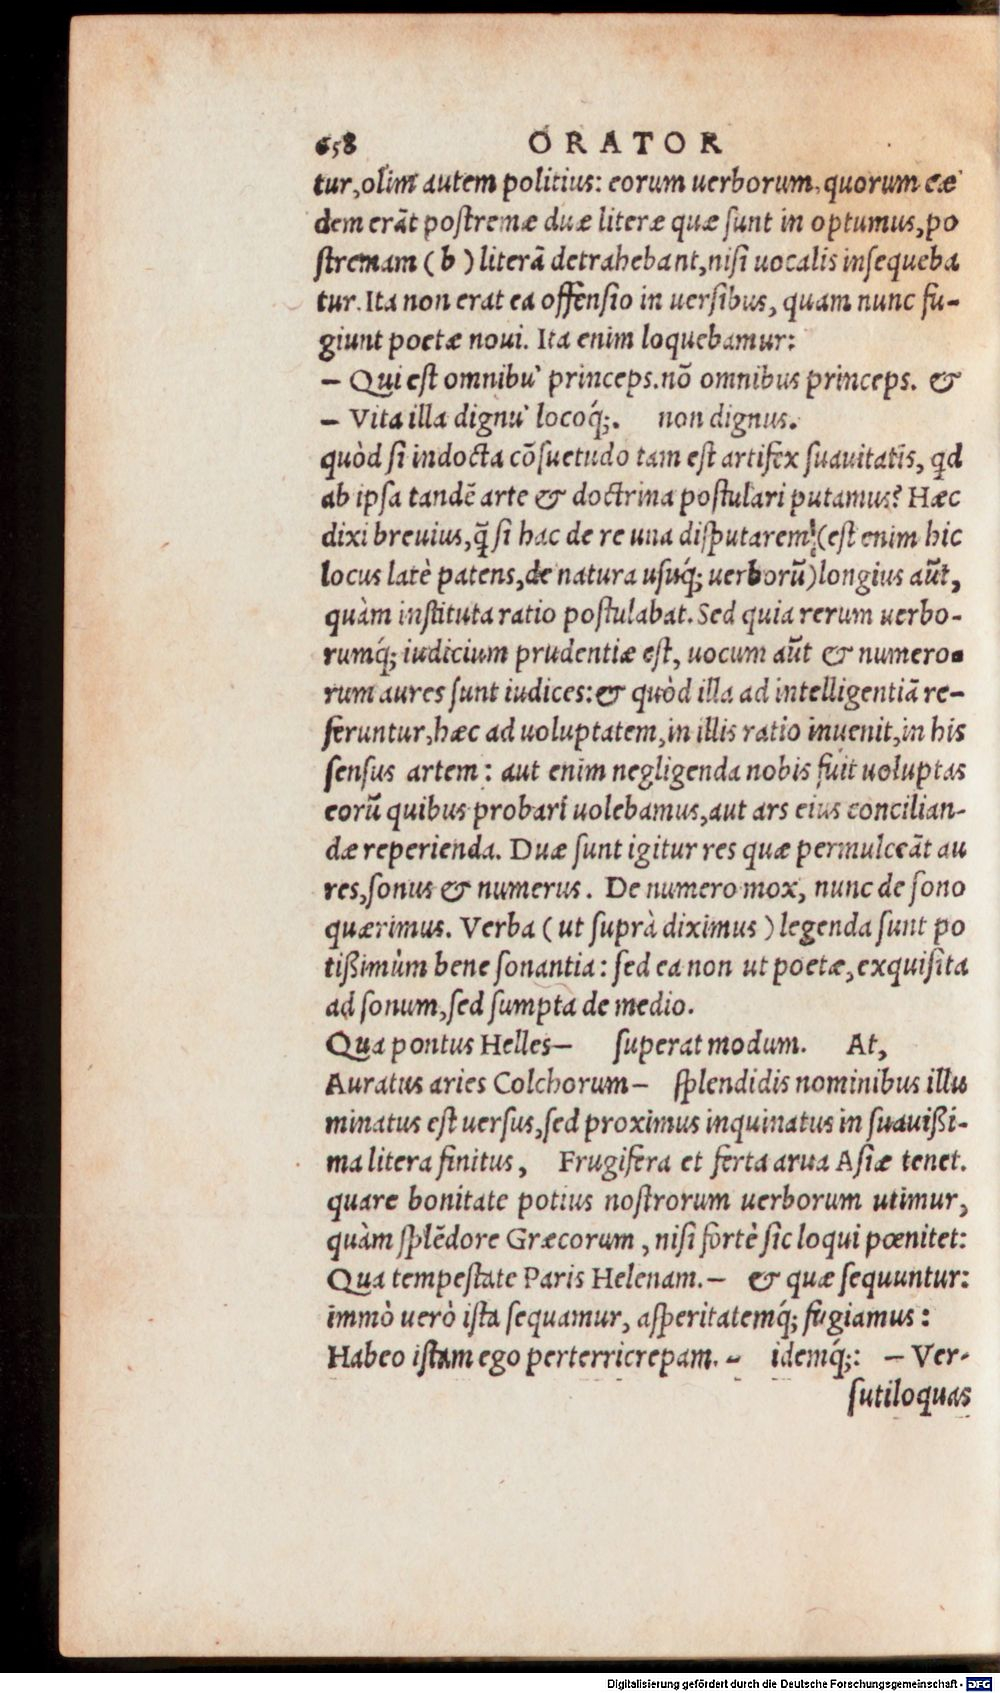 658 ORATOR
tur, olim autem politius: eorum uerborum, quorum eæ
dem erāt postremæ duæ literæ quæ sunt in optumus, po
stremam (b) literā detrahebant, nisi uocalis insequeba
tur. Ita non erat ea offensio in uersibus, quam nunc fu-
giunt poetæ noui. Ita enim loquebamur:
– Qui est omnibu' princeps. nō omnibus princeps. &
– Vita illa dignu' locoq́;. non dignus.
quòd si indocta cōsuetudo tam est artifex suauitatis, qd
ab ipsa tandē arte & doctrina postulari putamus? Hæc
dixi breuius, q̄ si hac de re una disputarem: (est enim hic
locus latè patens, de natura usuq́; uerborū) longius aūt,
quàm instituta ratio postulabat. Sed quia rerum uerbo-
rumq́; iudicium prudentiæ est, uocum aūt & numero-
rum aures sunt iudices: & quòd illa ad intelligentiā re-
feruntur, hæc ad uoluptatem, in illis ratio inuenit, in his
sensus artem: aut enim negligenda nobis fuit uoluptas
eorū quibus probari uolebamus, aut ars eius concilian-
dæ reperienda. Duæ sunt igitur res quæ permulceāt au
res, sonus & numerus. De numero mox, nunc de sono
quærimus. Verba (ut suprà diximus) legenda sunt po
tißimùm bene sonantia: sed ea non ut poetæ, exquisita
ad sonum, sed sumpta de medio.
Qua pontus Helles– superat modum. At,
Auratus aries Colchorum– splendidis nominibus illu
minatus est uersus, sed proximus inquinatus in suauißi-
ma litera finitus, Frugifera et ferta arua Asiæ tenet.
quare bonitate potius nostrorum uerborum utimur,
quàm splēdore Græcorum, nisi fortè sic loqui pœnitet:
Qua tempestate Paris Helenam.– & quæ sequuntur:
immò uerò ista sequamur, asperitatemq́; fugiamus:
Habeo istam ego perterricrepam. – idemq́;: – Ver-
sutiloquas
Digitalisierung gefördert durch die Deutsche Forschungsgemeinschaft - DFG